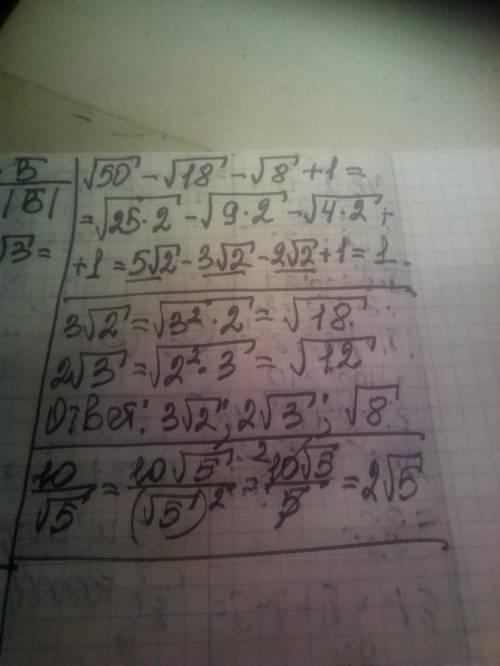 √50 - √18 - √8 + 1 =
= √25·2 - √9·2 - √4·2 +
√3 = + 1 = 5√2 - 3√2 - 2√2 + 1 = 1.
3√2 = √3²·2 = √18
2√3 = √2²·3 = √12
Ответ: 3√2; 2√3; √8
10/√5 = 10√5/(√5)² = 10√5/5 = 2√5